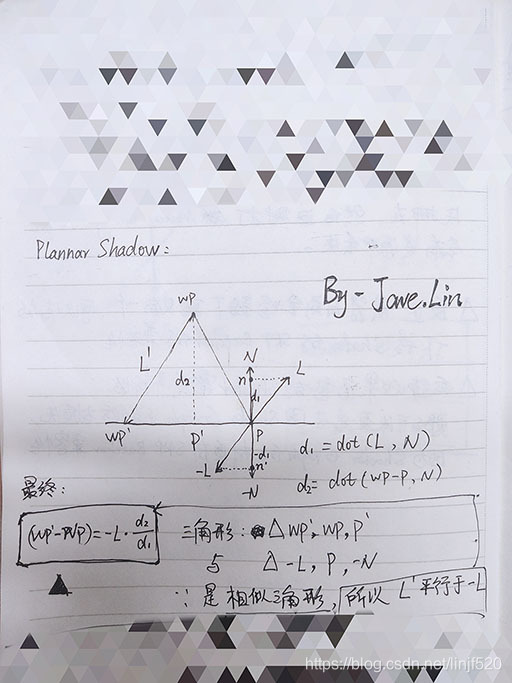 Plannar Shadow:
By - Jave.Lin
WP
L'
d₂
N
n
L
d₁
WP'
P'
P
-d₁
-L
n'
-N
d₁ = dot(L, N)
d₂ = dot(WP-P, N)
最终:
(WP'-WP) = -L · d₂/d₁
三角形: △ WP', WP, P'
与 △ -L, P, -N
∵ 是相似三角形, 所以 L' 平行于 -L
https://blog.csdn.net/linjf520